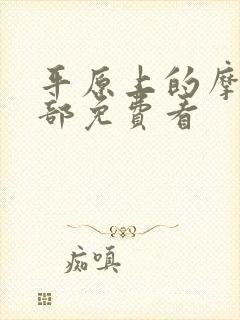 平原上的摩
部免费看
痴嗔